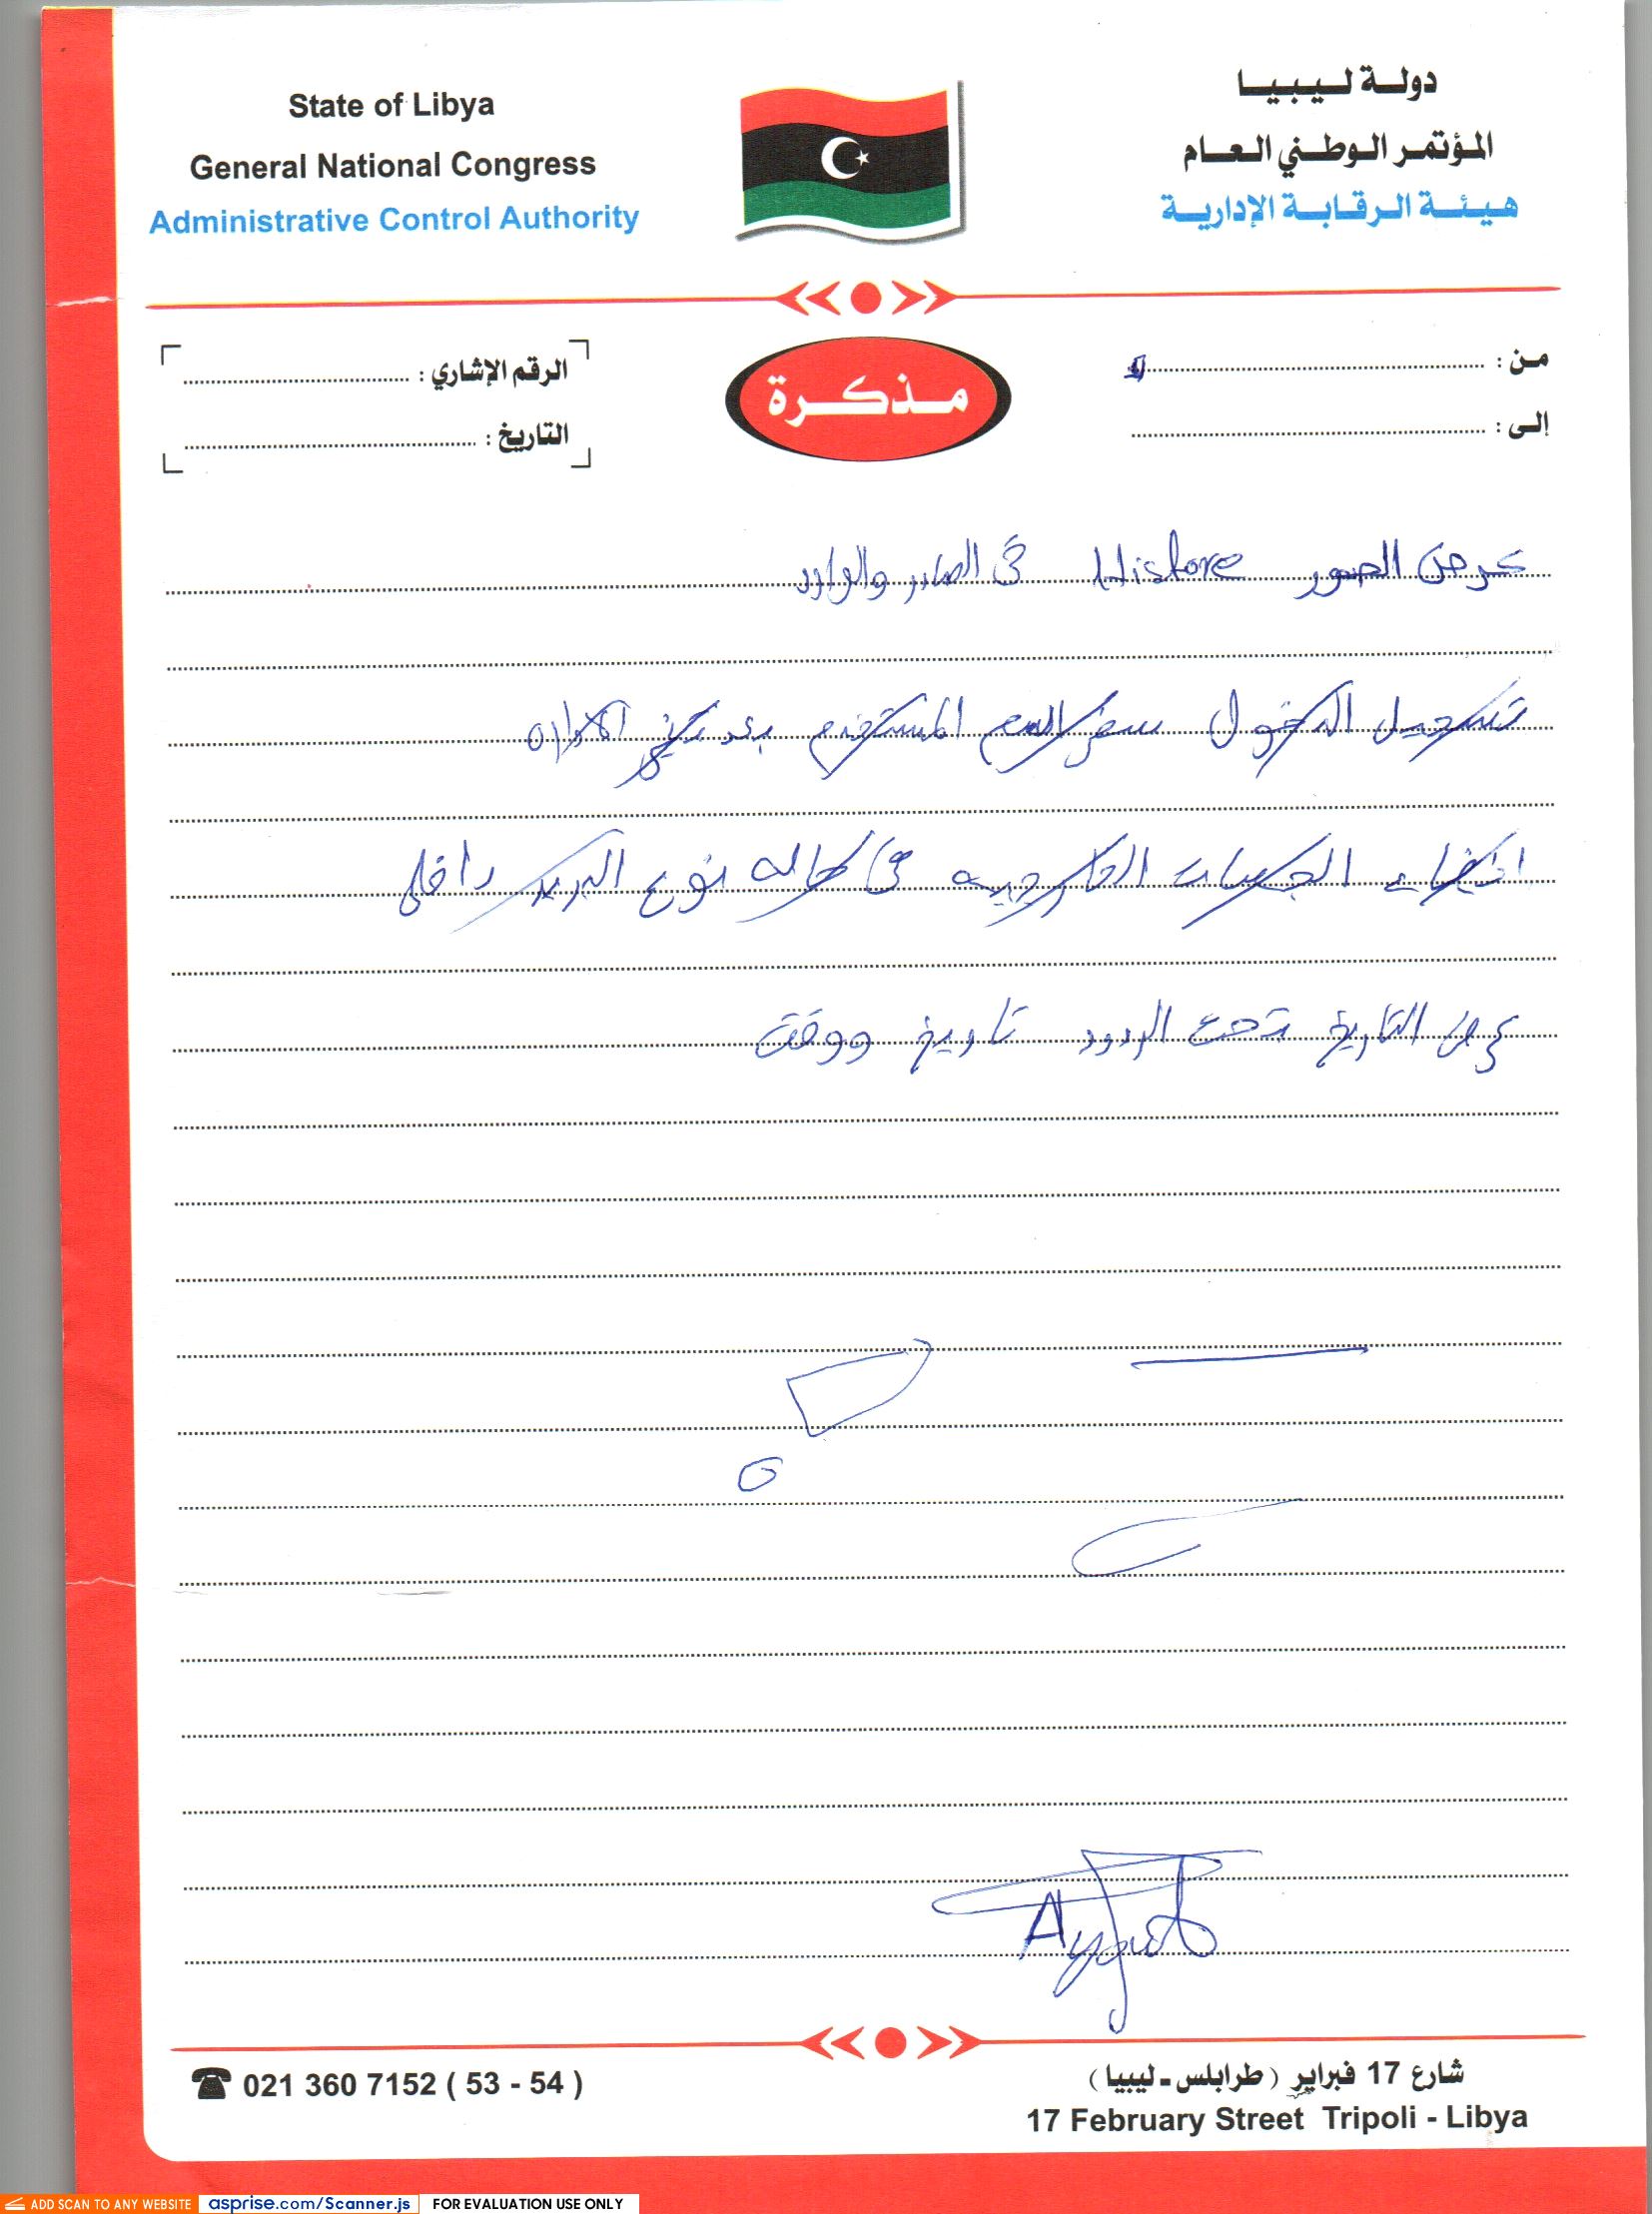 State of Libya
General National Congress
Administrative Control Authority
دولة ليبيا
المؤتمر الوطني العام
هيئة الرقابة الإدارية
من :
إلى :
مذكرة
الرقم الإشاري :
التاريخ :
عرض الصور Histore في الصادر والوارد
تسجيل الدخول اسم المستخدم بعد الادارة
اخفاء الجهات الخارجيه في حاله نوع البريد داخلي
عرض التاريخ تحت الردود تاريخ ووقت
021 360 7152 ( 53 - 54 )
شارع 17 فبراير ( طرابلس - ليبيا )
17 February Street Tripoli - Libya
ADD SCAN TO ANY WEBSITE asprise.com/Scanner.js FOR EVALUATION USE ONLY